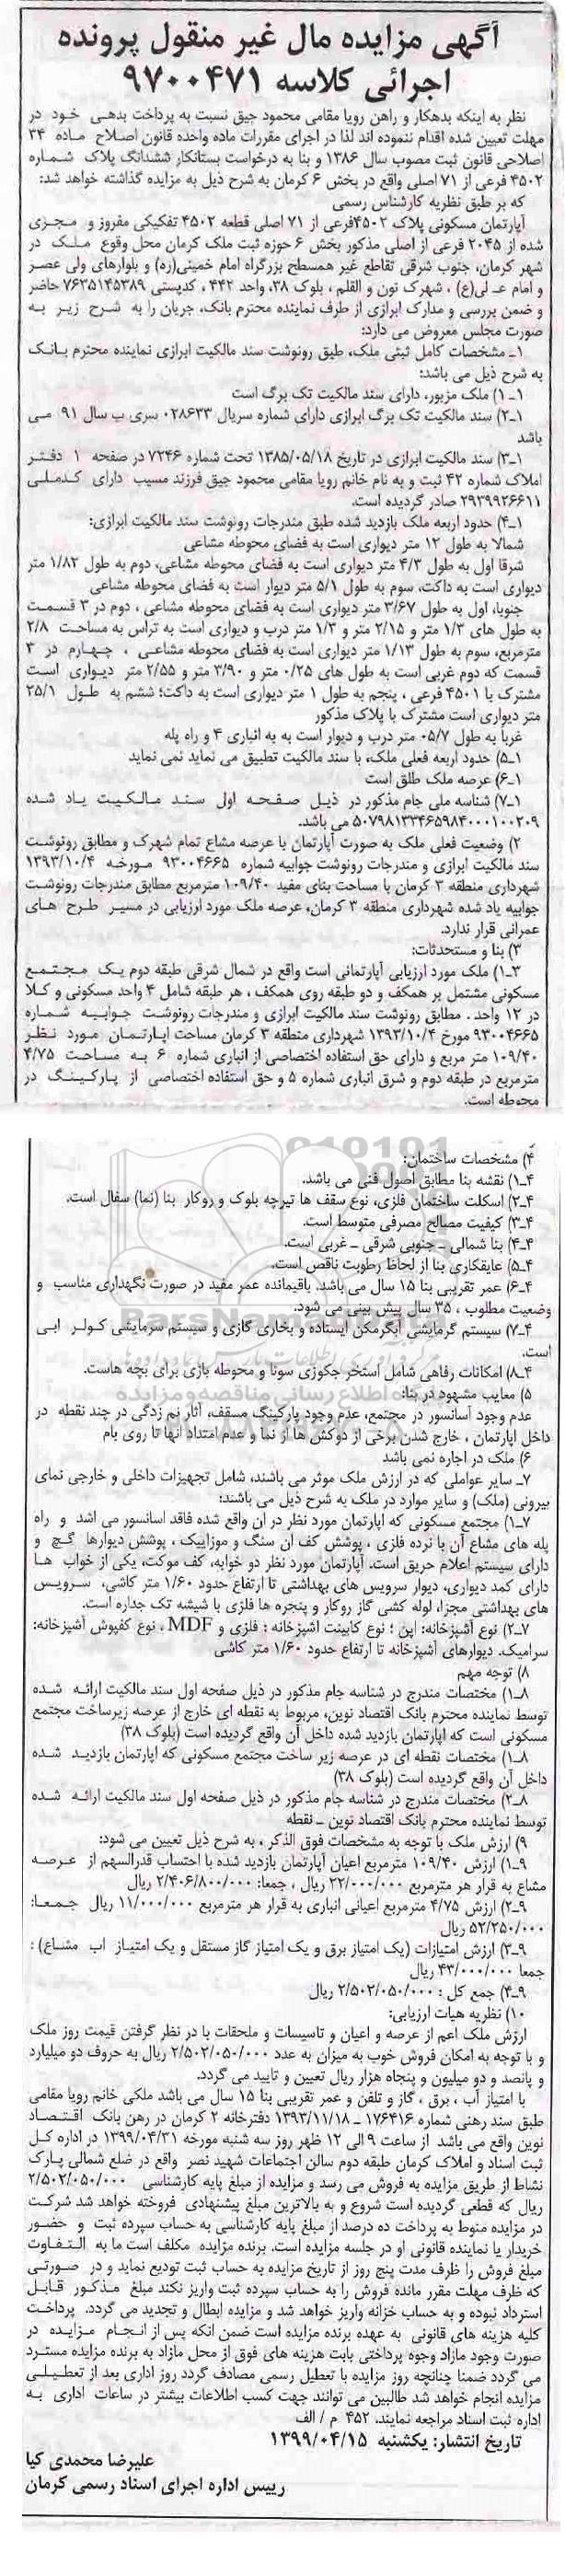 آگهی مزایده مال غیر منقول پرونده
اجرائی کلاسه ۹۷۰۰۴۷۱
نظر به اینکه بدهکار و راهن رویا مقامی محمود جیق نسبت به پرداخت بدهی خود در
مهلت تعیین شده اقدام ننموده اند لذا در اجرای مقررات ماده واحده قانون اصلاح ماده ۳۴
اصلاحی قانون ثبت مصوب سال ۱۳۸۶ و بنا به درخواست بستانکار ششدانگ پلاک شماره
۴۵۰۲ فرعی از ۷۱ اصلی واقع در بخش ۶ کرمان به شرح ذیل به مزایده گذاشته خواهد شد:
که بر طبق نظریه کارشناس رسمی
آپارتمان مسکونی پلاک ۴۵۰۲فرعی از ۷۱ اصلی قطعه ۴۵۰۲ تفکیکی مفروز و مجزی
شده از ۲۰۴۵ فرعی از اصلی مذکور بخش ۶ حوزه ثبت ملک کرمان محل وقوع ملک در
شهر کرمان، جنوب شرقی تقاطع غیر همسطح بزرگراه امام خمینی(ره) و بلوارهای ولی عصر
و امام علی(ع) ، شهرک نون و القلم ، بلوک ۳۸، واحد ۴۴۲ ، کدپستی ۷۶۳۵۱۴۵۳۸۹ حاضر
و ضمن بررسی و مدارک ابرازی از طرف نماینده محترم بانک، جریان را به شرح زیر به
صورت مجلس معروض می دارد:
۱ـ مشخصات کامل ثبتی ملک، طبق رونوشت سند مالکیت ابرازی نماینده محترم بانک
به شرح ذیل می باشد:
۱ـ۱) ملک مزبور، دارای سند مالکیت تک برگ است
۱ـ۲) سند مالکیت تک برگ ابرازی دارای شماره سریال ۰۲۸۶۳۳ سری ب سال ۹۱ می
باشد
۱ـ۳) سند مالکیت ابرازی در تاریخ ۱۳۸۵/۰۵/۱۸ تحت شماره ۷۲۴۶ در صفحه ۱ دفتر
املاک شماره ۴۲ ثبت و به نام خانم رویا مقامی محمود جیق فرزند مسیب دارای کدملی
۲۹۳۹۹۲۶۶۱۱ صادر گردیده است.
۱ـ۴) حدود اربعه ملک بازدید شده طبق مندرجات رونوشت سند مالکیت ابرازی:
شمالا به طول ۱۲ متر دیواری است به فضای محوطه مشاعی
شرقا اول به طول ۴/۳ متر دیواری است به فضای محوطه مشاعی، دوم به طول ۱/۸۲ متر
دیواری است به داکت، سوم به طول ۵/۱ متر دیوار است به فضای محوطه مشاعی
جنوبا، اول به طول ۳/۶۷ متر دیواری است به فضای محوطه مشاعی ، دوم در ۳ قسمت
به طول های ۱/۳ متر و ۲/۱۵ متر و ۱/۳ متر درب و دیواری است به تراس به مساحت ۲/۸
مترمربع، سوم به طول ۱/۱۳ متر دیواری است به فضای محوطه مشاعی ، چهارم در ۳
قسمت که دوم غربی است به طول های ۰/۲۵ متر و ۳/۹۰ متر و ۲/۵۵ متر دیواری است
مشترک با ۴۵۰۱ فرعی ، پنجم به طول ۱ متر دیواری است به داکت؛ ششم به طول ۲۵/۱
متر دیواری است مشترک با پلاک مذکور
غربا به طول ۰۵/۷ متر درب و دیوار است به به انباری ۴ و راه پله
۱ـ۵) حدود اربعه فعلی ملک، با سند مالکیت تطبیق می نماید نمی نماید
۱ـ۶) عرصه ملک طلق است
۱ـ۷) شناسه ملی جام مذکور در ذیل صفحه اول سند مالکیت یاد شده
۵۰۷۹۸۱۳۳۴۶۵۹۸۴۰۰۰۱۰۰۲۰۹ می باشد.
۲) وضعیت فعلی ملک به صورت آپارتمان با عرصه مشاع تمام شهرک و مطابق رونوشت
سند مالکیت ابرازی و مندرجات رونوشت جوابیه شماره ۹۳۰۰۴۶۶۵ مورخه ۱۳۹۳/۱۰/۴
شهرداری منطقه ۳ کرمان با مساحت بنای مفید ۱۰۹/۴۰ مترمربع مطابق مندرجات رونوشت
جوابیه یاد شده شهرداری منطقه ۳ کرمان، عرصه ملک مورد ارزیابی در مسیر طرح های
عمرانی قرار ندارد.
۳) بنا و مستحدثات:
۳ـ۱) ملک مورد ارزیابی آپارتمانی است واقع در شمال شرقی طبقه دوم یک مجتمع
مسکونی مشتمل بر همکف و دو طبقه روی همکف ، هر طبقه شامل ۴ واحد مسکونی و کلا
در ۱۲ واحد . مطابق رونوشت سند مالکیت ابرازی و مندرجات رونوشت جوابیه شماره
۹۳۰۰۴۶۶۵ مورخ ۱۳۹۳/۱۰/۴ شهرداری منطقه ۳ کرمان مساحت آپارتمان مورد نظر
۱۰۹/۴۰ متر مربع و دارای حق استفاده اختصاصی از انباری شماره ۶ به مساحت ۴/۷۵
مترمربع در طبقه دوم و شرق انباری شماره ۵ و حق استفاده اختصاصی از پارکینگ در
محوطه است.
۴) مشخصات ساختمان:
۴ـ۱) نقشه بنا مطابق اصول فنی می باشد.
۴ـ۲) اسکلت ساختمان فلزی، نوع سقف ها تیرچه بلوک و روکار بنا (نما) سفال است.
۴ـ۳) کیفیت مصالح مصرفی متوسط است.
۴ـ۴) بنا شمالی ـ جنوبی شرقی ـ غربی است.
۴ـ۵) عایقکاری بنا از لحاظ رطوبت ناقص است.
۴ـ۶) عمر تقریبی بنا ۱۵ سال می باشد. باقیمانده عمر مفید در صورت نگهداری مناسب و
وضعیت مطلوب ، ۳۵ سال پیش بینی می شود.
۴ـ۷) سیستم گرمایشی آبگرمکن ایستاده و بخاری گازی و سیستم سرمایشی کولر ابی
است.
۴ـ۸) امکانات رفاهی شامل استخر جکوزی سونا و محوطه بازی برای بچه هاست.
۵) معایب مشهود در بنا:
عدم وجود آسانسور در مجتمع، عدم وجود پارکینگ مسقف، آثار نم زدگی در چند نقطه در
داخل اپارتمان ، خارج شدن برخی از دوکش ها از نما و عدم امتداد آنها تا روی بام
۶) ملک در اجاره نمی باشد
۷ـ سایر عواملی که در ارزش ملک موثر می باشند، شامل تجهیزات داخلی و خارجی نمای
بیرونی (ملک) و سایر موارد در ملک به شرح ذیل می باشند:
۷ـ۱) مجتمع مسکونی که اپارتمان مورد نظر در ان واقع شده فاقد اسانسور می اشد و راه
پله های مشاع آن با نرده فلزی ، پوشش کف ان سنگ و موزاییک ، پوشش دیوارها گچ و
دارای سیستم اعلام حریق است. آپارتمان مورد نظر دو خوابه، کف موکت، یکی از خواب ها
دارای کمد دیواری، دیوار سرویس های بهداشتی تا ارتفاع حدود ۱/۶۰ متر کاشی، سرویس
های بهداشتی مجزا، لوله کشی گاز روکار و پنجره ها فلزی با شیشه تک جداره است.
۷ـ۲) نوع آشپزخانه: اپن ؛ نوع کابینت اشپزخانه : فلزی و MDF ، نوع کفپوش آشپزخانه:
سرامیک. دیوارهای آشپزخانه تا ارتفاع حدود ۱/۶۰ متر کاشی
۸) توجه مهم
۸ـ۱) مختصات مندرج در شناسه جام مذکور در ذیل صفحه اول سند مالکیت ارائه شده
توسط نماینده محترم بانک اقتصاد نوین، مربوط به نقطه ای خارج از عرصه زیرساخت مجتمع
مسکونی است که اپارتمان بازدید شده داخل آن واقع گردیده است (بلوک ۳۸)
۸ـ۱) مختصات نقطه ای در عرصه زیر ساخت مجتمع مسکونی که اپارتمان بازدید شده
داخل آن واقع گردیده است (بلوک ۳۸)
۸ـ۲) مختصات مندرج در شناسه جام مذکور در ذیل صفحه اول سند مالکیت ارائه شده
توسط نماینده محترم بانک اقتصاد نوین ـ نقطه
۹) ارزش ملک با توجه به مشخصات فوق الذکر ، به شرح ذیل تعیین می شود:
۹ـ۱) ارزش ۱۰۹/۴۰ مترمربع اعیان آپارتمان بازدید شده با احتساب قدرالسهم از عرصه
مشاع به قرار هر مترمربع ۲۲/۰۰۰/۰۰۰ ریال ، جمعا: ۲/۴۰۶/۸۰۰/۰۰۰ ریال
۹ـ۲) ارزش ۴/۷۵ مترمربع اعیانی انباری به قرار هر مترمربع ۱۱/۰۰۰/۰۰۰ ریال جمعا:
۵۲/۲۵۰/۰۰۰ ریال
۹ـ۳) ارزش امتیازات (یک امتیاز برق و یک امتیاز گاز مستقل و یک امتیاز اب مشاع) :
جمعا ۴۳/۰۰۰/۰۰۰ ریال
۹ـ۴) جمع کل : ۲/۵۰۲/۰۵۰/۰۰۰ ریال
۱۰) نظریه هیات ارزیابی:
ارزش ملک اعم از عرصه و اعیان و تاسیسات و ملحقات با در نظر گرفتن قیمت روز ملک
و با توجه به امکان فروش خوب به میزان به عدد ۲/۵۰۲/۰۵۰/۰۰۰ ریال به حروف دو میلیارد
و پانصد و دو میلیون و پنجاه هزار ریال تعیین و تایید می گردد.
با امتیاز آب ، برق ، گاز و تلفن و عمر تقریبی بنا ۱۵ سال می باشد ملکی خانم رویا مقامی
طبق سند رهنی شماره ۱۷۶۴۱۶ ـ ۱۳۹۳/۱۱/۱۸ دفترخانه ۲ کرمان در رهن بانک اقتصاد
نوین واقع می باشد از ساعت ۹ الی ۱۲ ظهر روز سه شنبه مورخه ۱۳۹۹/۰۴/۳۱ در اداره کل
ثبت اسناد و املاک کرمان طبقه دوم سالن اجتماعات شهید نصر واقع در ضلع شمالی پارک
نشاط از طریق مزایده به فروش می رسد و مزایده از مبلغ پایه کارشناسی ۲/۵۰۲/۰۵۰/۰۰۰
ریال که قطعی گردیده است شروع و به بالاترین مبلغ پیشنهادی فروخته خواهد شد شرکت
در مزایده منوط به پرداخت ده درصد از مبلغ پایه کارشناسی به حساب سپرده ثبت و حضور
خریدار یا نماینده قانونی او در جلسه مزایده است. برنده مزایده مکلف است ما به التفاوت
مبلغ فروش را ظرف مدت پنج روز از تاریخ مزایده به حساب ثبت تودیع نماید و در صورتی
که ظرف مهلت مقرر مانده فروش را به حساب سپرده ثبت واریز نکند مبلغ مذکور قابل
استرداد نبوده و به حساب خزانه واریز خواهد شد و مزایده ابطال و تجدید می گردد. پرداخت
کلیه هزینه های قانونی به عهده برنده مزایده است ضمن انکه پس از انجام مزایده در
صورت وجود مازاد وجوه پرداختی بابت هزینه های فوق از محل مازاد به برنده مزایده مسترد
می گردد ضمنا چنانچه روز مزایده با تعطیل رسمی مصادف گردد روز اداری بعد از تعطیلی
مزایده انجام خواهد شد طالبین می توانند جهت کسب اطلاعات بیشتر در ساعات اداری به
اداره ثبت اسناد مراجعه نمایند. ۴۵۲ م / الف
تاریخ انتشار: یکشنبه ۱۳۹۹/۰۴/۱۵
علیرضا محمدی کیا
رییس اداره اجرای اسناد رسمی کرمان